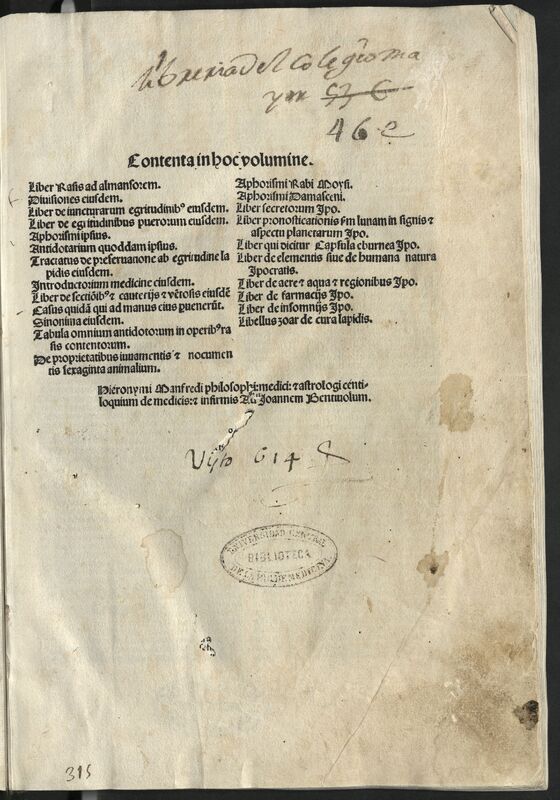 libreria del Colegio ma
yor
46
Contenta in hoc volumine.
Liber Rasis ad almansorem.
Divisiones eiusdem.
Liber de iuncturarum egritudinibꝰ eiusdem.
Liber de egritudinibus puerorum eiusdem.
Aphorismi ipsius.
Antidotarium quoddam ipsius.
Tractatus de preservatione ab egritudine la
pidis eiusdem.
Introductorium medicine eiusdem.
Liber de sectiōibꝰ ⁊ cauterijs ⁊ vētosis eiusdē
Casus quidā qui ad manus eius puenerūt.
Sinonima eiusdem.
Tabula omnium antidotorum in operibꝰ ra
sis contentorum.
De proprietatibus iuvamentis ⁊ nocumen
tis sexaginta animalium.
Aphorismi Rabi Moysi.
Aphorismi Damasceni.
Liber secretorum Ipo.
Liber pronosticationis ẜm lunam in signis ⁊
aspectu planetarum Ipo.
Liber qui dicitur Capsula eburnea Ipo.
Liber de elementis sive de humana natura
Ipocratis.
Liber de aere ⁊ aqua ⁊ regionibus Ipo.
Liber de farmacijs Ipo.
Liber de insomnijs Ipo.
Libellus zoar de cura lapidis.
Hieronymi Manfredi philosophi: medici: ⁊ astrologi centi-
loquium de medicis: ⁊ infirmis Ad Joannem Bentivolum.
614
UNIVERSIDAD CENTRAL
BIBLIOTECA
DE LA FAC. DE MEDICINA
315